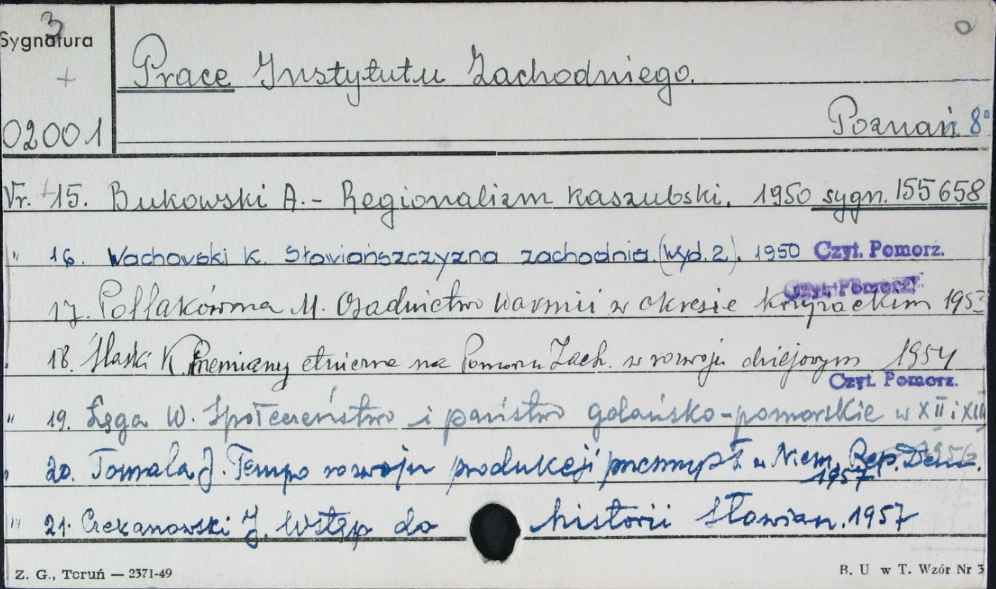 3
Sygnatura
+
02001
Prace Instytutu Zachodniego.
Poznań 8°
Nr. 15. Bukowski A. - Regionalizm kaszubski. 1950 sygn. 155658
" 16. Wachowski K. Słowiańszczyzna zachodnia (wyd. 2). 1950 Czyt. Pomorz.
Czyt. Pomorz.
17. Pollakówna M. Osadnictwo Warmii w okresie krzyżackim 1953
18. Ślaski K. Przemiany etniczne na Pomorzu Zach. w rozwoju dziejowym 1954
Czyt. Pomorz.
" 19. Łęga W. Społeczeństwo i państwo gdańsko-pomorskie w XII i XIII
1956
20. Tomala J. Tempo rozwoju produkcji przemysł. w Niem. Rep. Dem.
1957
" 21. Czekanowski J. Wstęp do historii Słowian. 1957
Z. G., Toruń — 2371-49
B. U w T. Wzór Nr 3